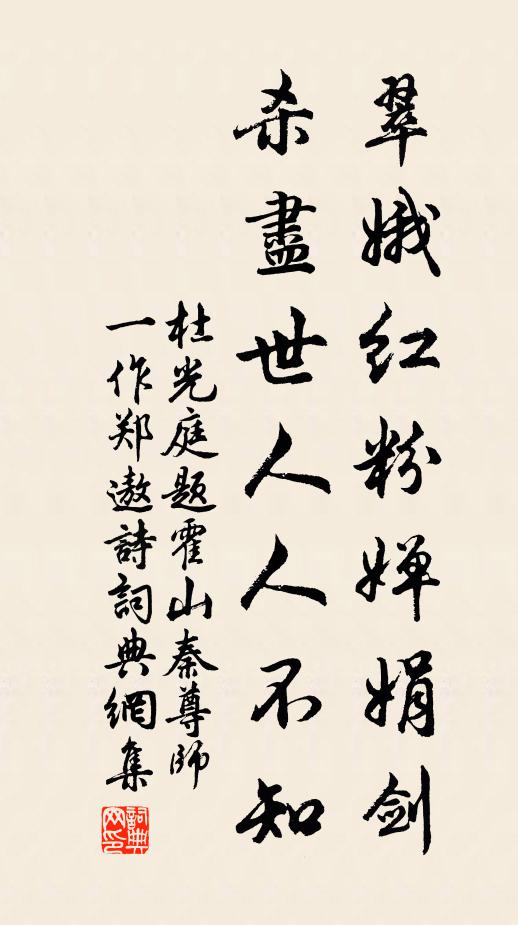 翠娥红粉婵娟剑
杀盡世人人不知
杜光庭題霍山秦尊師
一作郑遨詩詞典網集
詞典网印